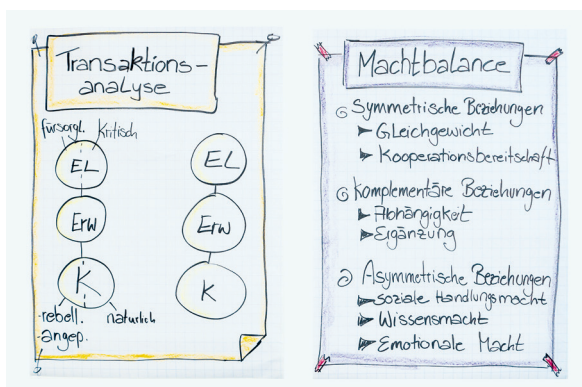 Transaktions-
analyse
fürsorgl. Kritisch
EL
Erw
K
-rebell. natürlich
-angep.
EL
Erw
K
Machtbalance
Symmetrische Beziehungen
Gleichgewicht
Kooperationsbereitschaft
Komplementäre Beziehungen
Abhängigkeit
Ergänzung
Asymmetrische Beziehungen
soziale Handlungsmacht
Wissensmacht
Emotionale Macht